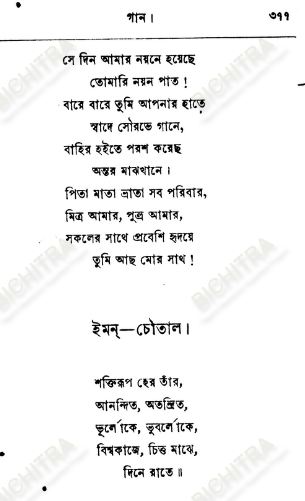 গান।
৩৭৭
সে দিন আমার নয়নে হয়েছে
তোমারি নয়ন পাত!
বারে বারে তুমি আপনার হাতে
স্বাদে সৌরভে গানে,
বাহির হইতে পরশ করেছ
অন্তর মাঝখানে।
পিতা মাতা ভ্রাতা সব পরিবার,
মিত্র আমার, পুত্র আমার,
সকলের সাথে প্রবেশি হৃদয়ে
তুমি আছ মোর সাথ!
ইমন্—চৌতাল।
শক্তিরূপ হের তাঁর,
আনন্দিত, অতন্দ্রিত,
ভূর্লোকে, ভুবর্লোকে,
বিশ্বকাজে, চিত্ত মাঝে,
দিনে রাতে॥
BICHITRA